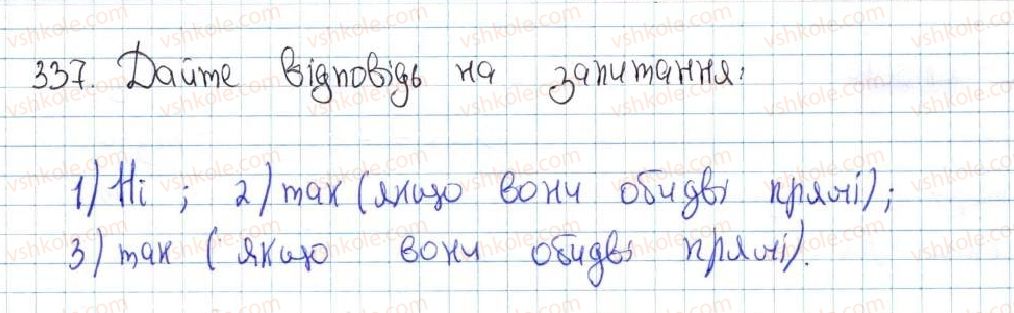 337. Дайте відповідь на запитання:
1) Ні ; 2) так (якщо вони обидві прямі);
3) так ( якщо вони обидві прямі).